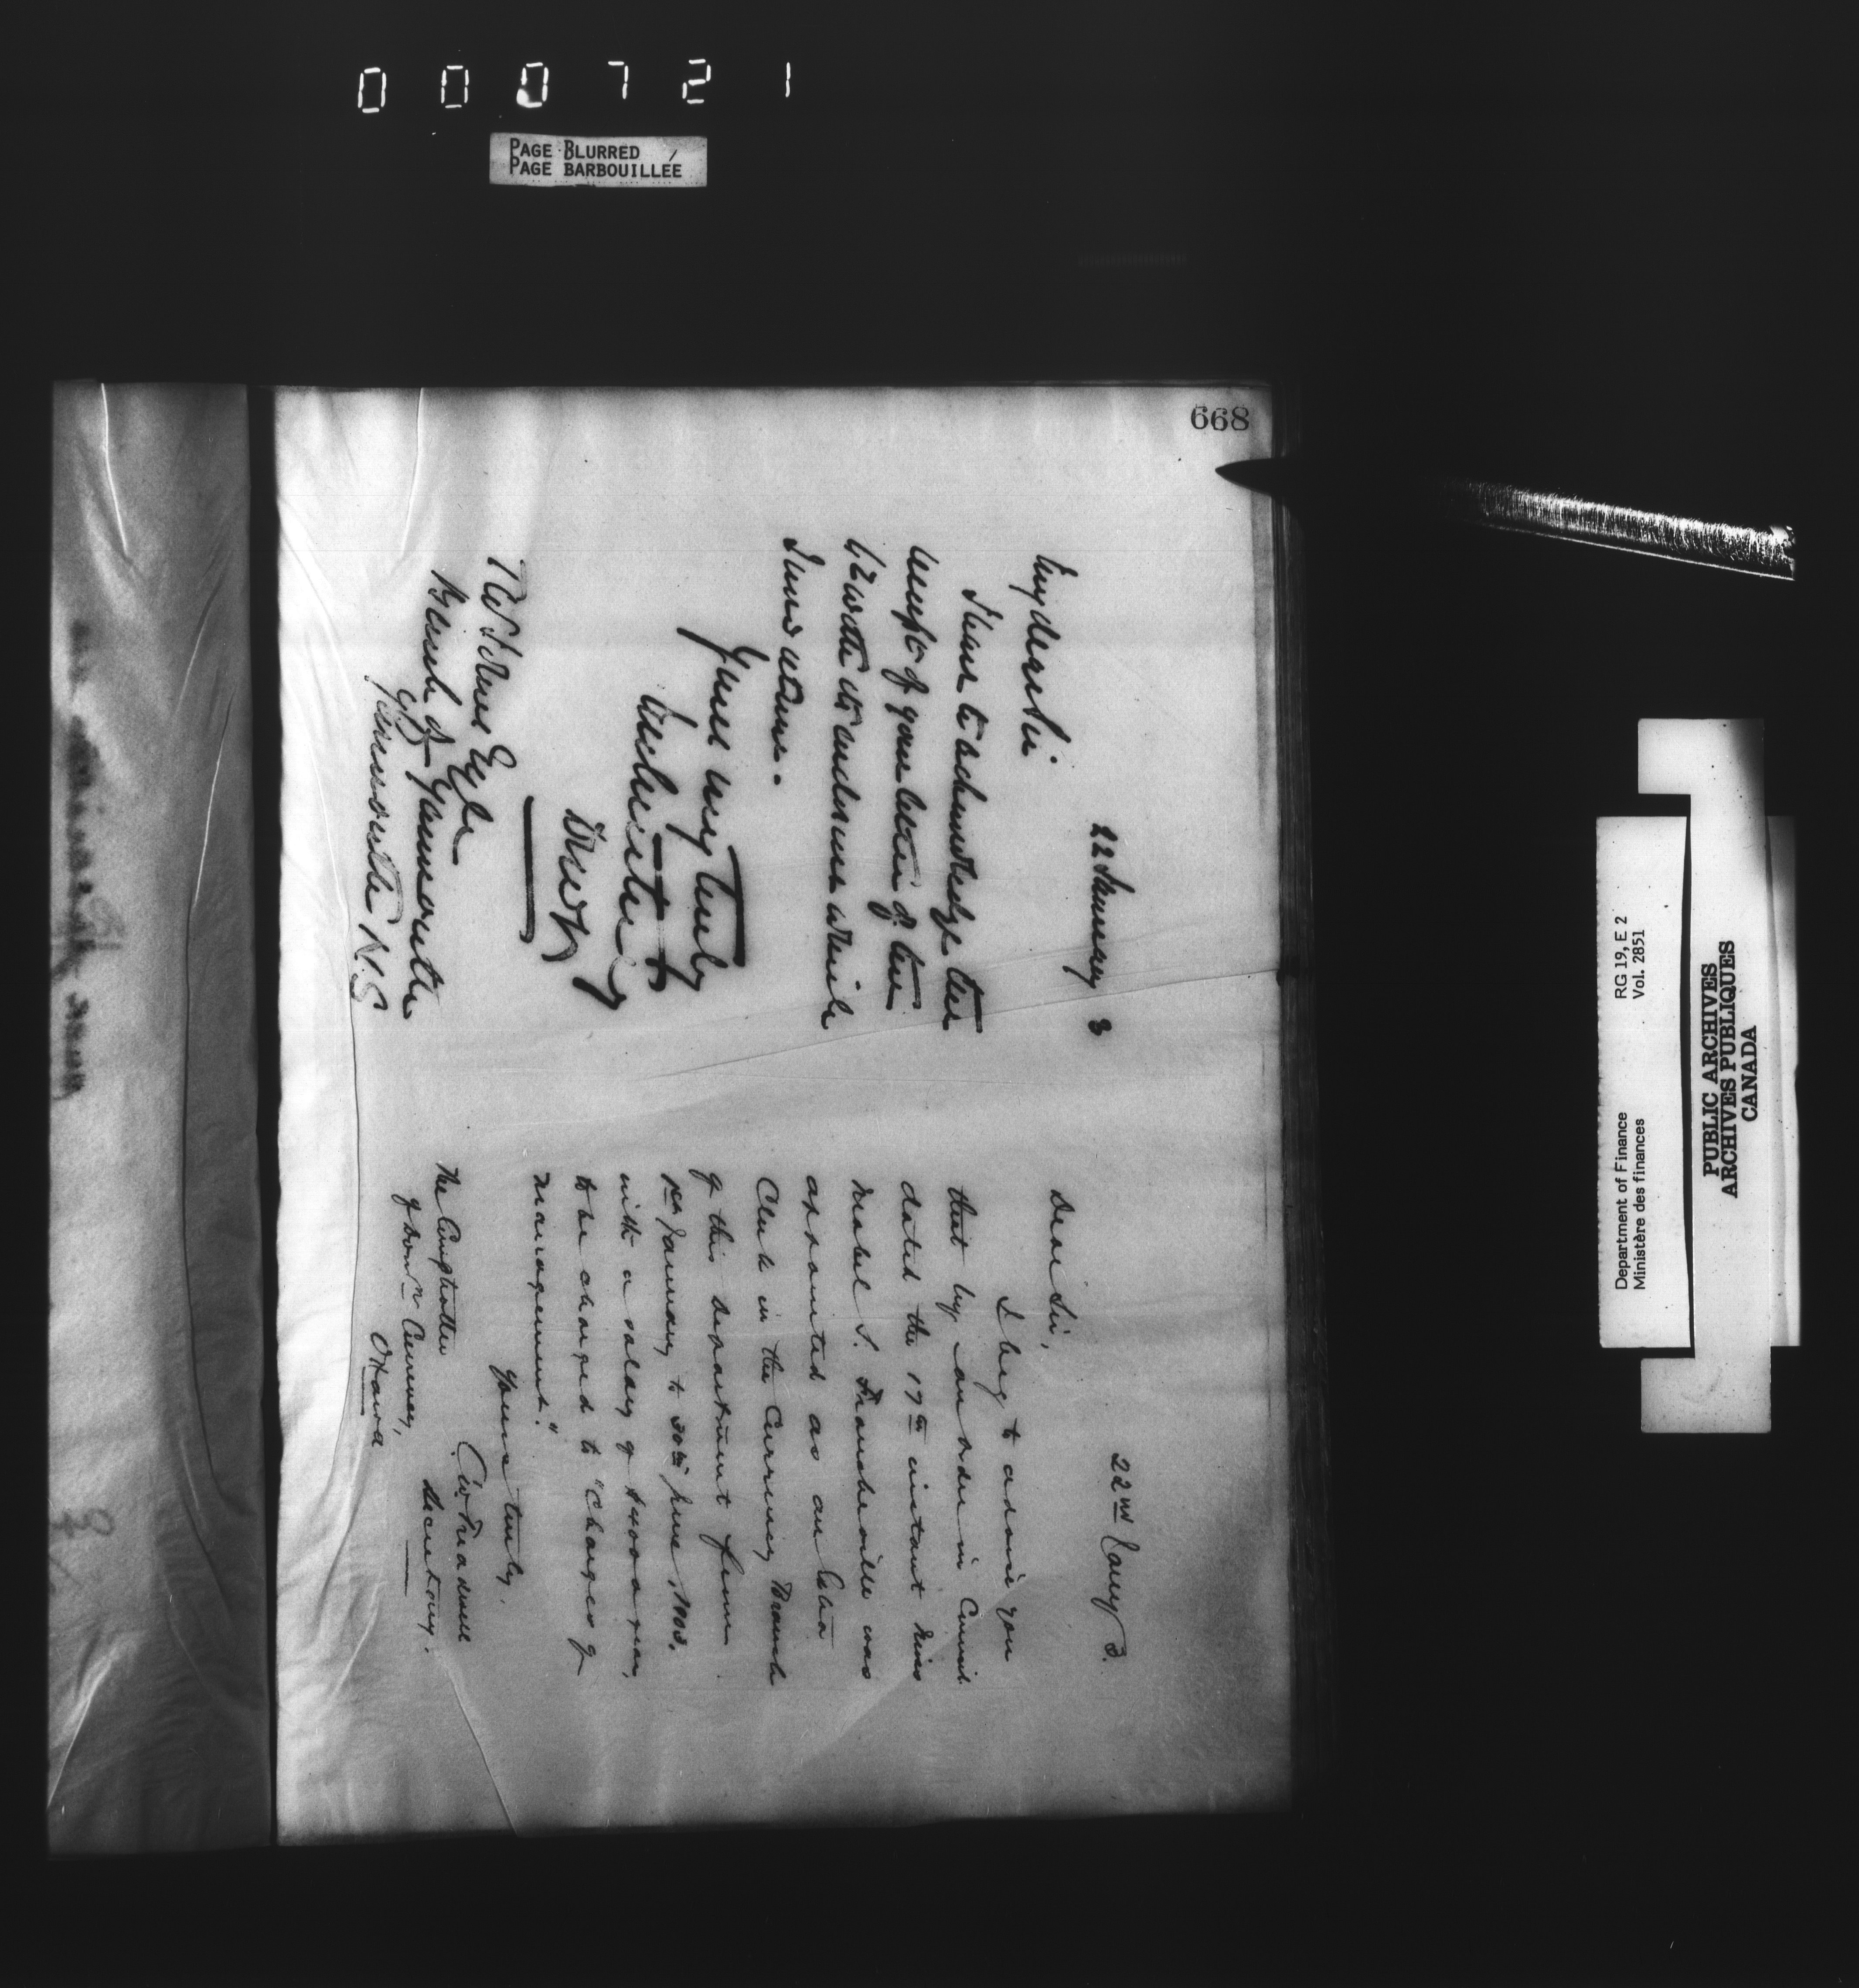 000721
PAGE BLURRED
PAGE BARBOUILLÉE
668
22 January 3
My dear Sir
I have to acknowledge the
receipt of your letter of the
12 with its enclosure which
I now return.
Yours very truly
Deputy
Esqr
Bank of Yarmouth
Yarmouth N.S
22nd Jany 3.
Dear Sir,
I beg to advise you
that by an order in Council
dated the 17th instant Miss
Mabel S. was
appointed as an Extra
Clerk in the Currency Branch
of this department from
1st January to 30th June, 1903,
with a salary of $400 a year,
to be charged to "Charges of
management."
Yours truly,
Secretary.
The Comptroller
of Domn Currency,
Ottawa
Department of Finance
Ministère des finances
RG 19, E 2
Vol. 2851
PUBLIC ARCHIVES
ARCHIVES PUBLIQUES
CANADA